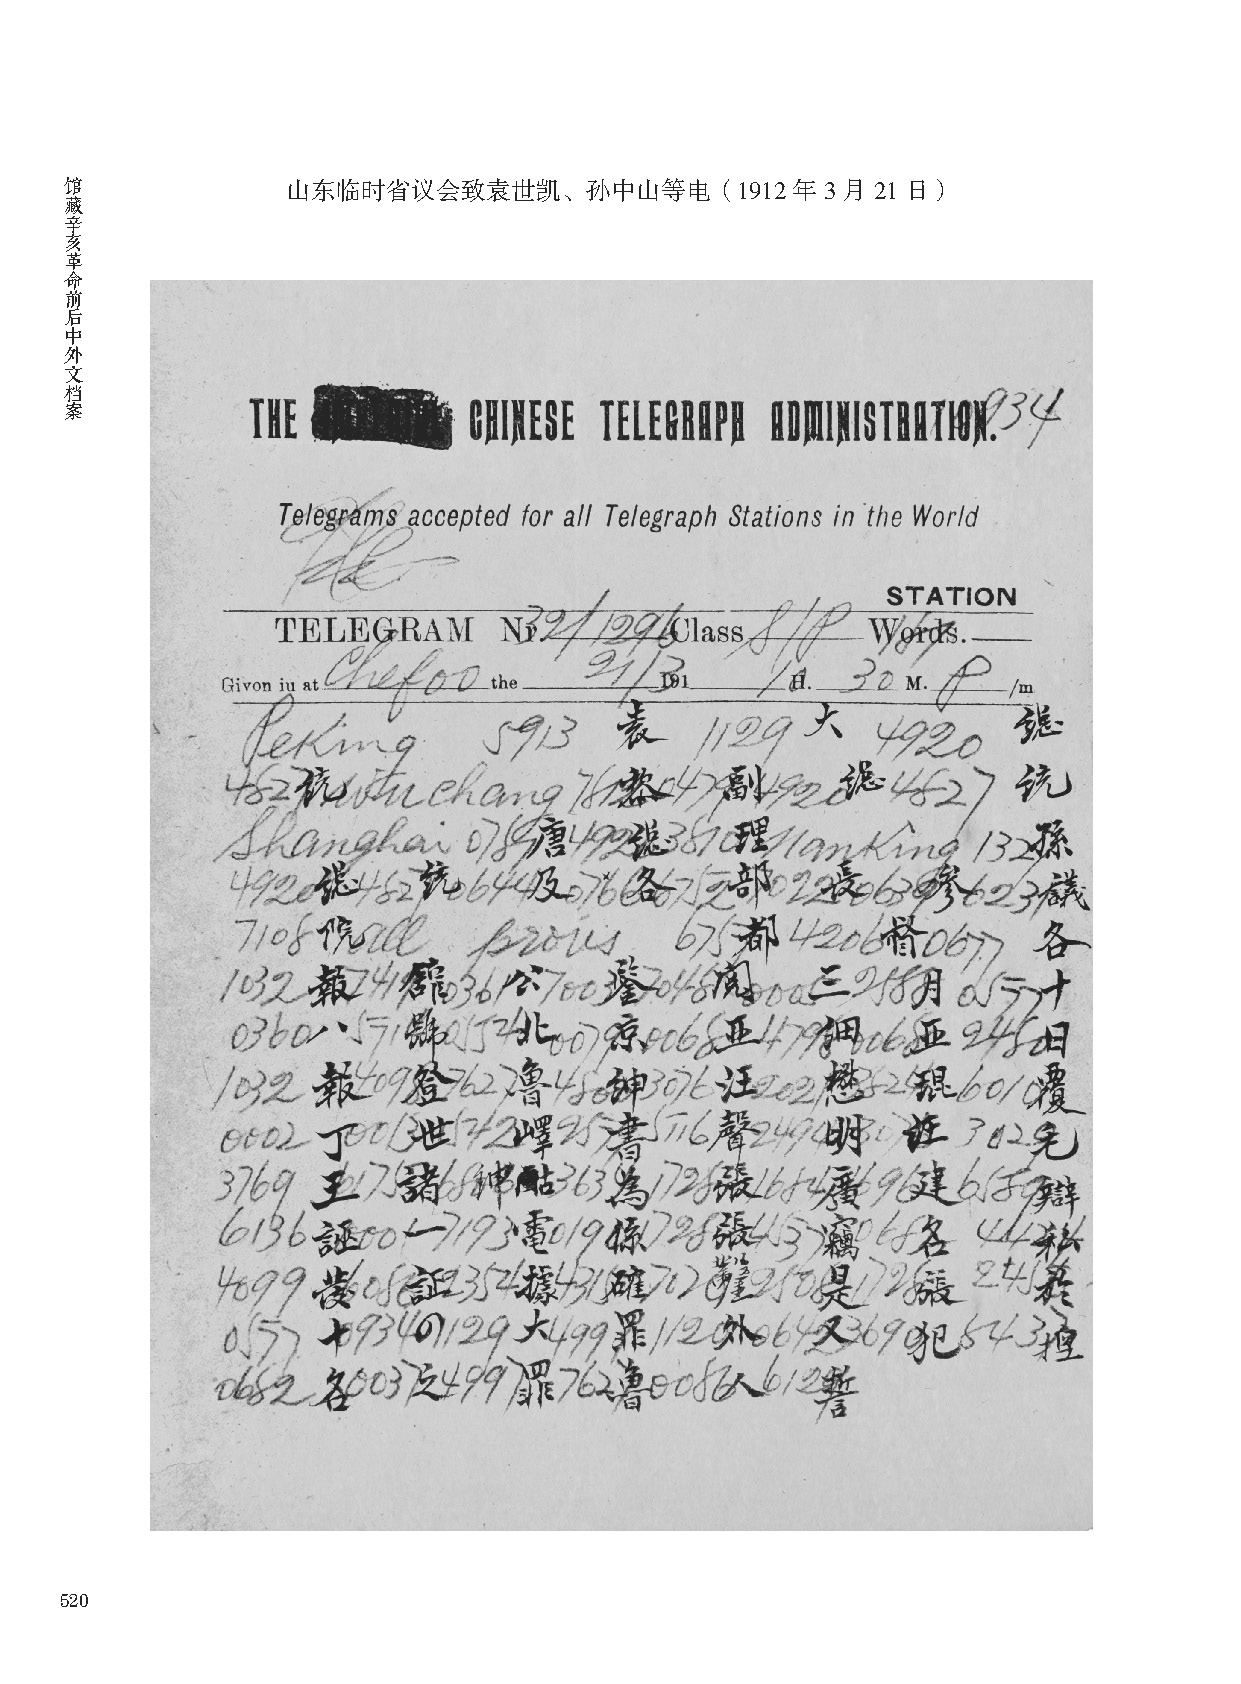 馆藏辛亥革命前后中外文档案
山东临时省议会致袁世凯、孙中山等电（1912年3月21日）
934
THE CHINESE TELEGRAPH ADMINISTRATION.
Telegrams accepted for all Telegraph Stations in the World
STATION
TELEGRAM Nr. 392/1296 Class S/P Words. 187
Givon iu at Chefoo the 21/3 191 /H. 30 M. P /m
Peking 5913 袁 1129 大 4920 總
4827 統 Wuchang 7812 黎 0479 副 4920 總 4827 統
Shanghai 0781 唐 4920 總 3810 理 Nanking 1327 孫
4920 總 4827 統 0644 及 0766 各 6752 部 7022 長 0639 參 6231 議
7108 院 all provis 6757 都 4206 督 0677 各
1032 報 7419 館 0361 公 7003 鑒 7048 閱 0005 三 2588 月 0577 十
0360 八 5714 號 0554 北 0079 京 0068 亚 4798 細 0068 亚 2480 日
1032 報 4098 登 7627 魯 4800 紳 3076 汪 2021 懋 3824 琨 6010 覆
0002 丁 0013 世 1542 嶧 2579 書 5116 聲 2494 明 3079 汪 3029 毛
3769 王 6175 諸 紳 3634 為 1728 張 1684 廣 1696 建 6589 辯
6136 誣 0001 一 7193 電 0191 係 1728 張 4537 竊 0682 名 4424 私
4099 發 6086 証 2354 據 4315 確 7026 鑿 2508 是 1728 張 245 於
0577 十 0934 1129 大 4997 罪 1120 外 0642 又 3690 犯 5433 捏
0682 名 0037 之 4997 罪 7627 魯 0086 人 6128 誓
520